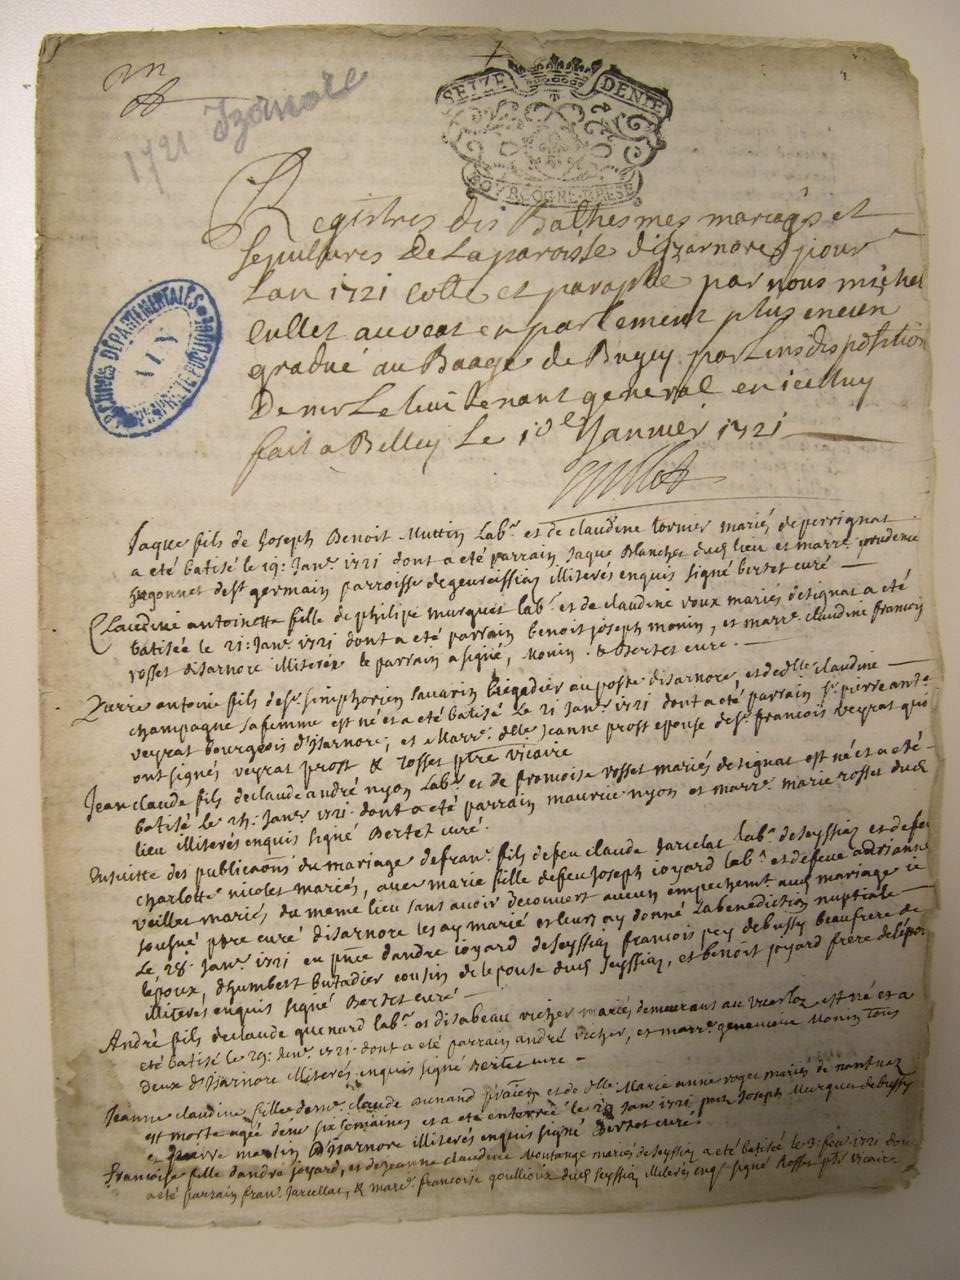 1721 Izanore
SEIZE DENIE
BOVRGOGNE BRESE
Registres des Bathesmes mariages et
sepultures De La paroisse dizarnore pour
Lan 1721 cotte et paraphé par nous michel
Cullet auvoat en parlement plus encien
gradué au Baage de Bugey par Lindisposition
De mr Le lieutenant general en icelluy
fait a Belley Le 10e Janvier 1721
Cullet
ARCHIVES DÉPARTEMENTALES
AIN
PROPRIÉTÉ PUBLIQUE
Jaque fils de Joseph Benoit Muttin Labr. et de claudine tornier mariés de perrignat
a eté batisé le 19: Janr. 1721 dont a été parrain Jaque Blanchet dud lieu et marre. prudence
gugonnet de st germain parroisse de geureissiay illiterés enquis signé bertet curé
Claudine antoinette fille de philipe murquet labr. et de claudine roux mariés designat a eté
batisée le 21: Janr. 1721 dont a été parrain benoit joseph monin, et marre. claudine francois
rosset disarnore illiterée le parrain a signé, Monin & Bertet curé.
Pierre antoine fils de sr. simphorien savarin brigadier au poste disarnore, et de dlle claudine
champagne sa femme est né et a été batisé le 21 Janr. 1721 dont a été parrain sr. pierre ant
veyrat bourgeois d'Isarnore, et Marre. dlle Jeanne prost epouse de sr francois veyrat qui
ont signés veyrat prost & rosset ptre vicaire
Jean claude fils de claude andré nyon Labr. et de francoise rosset mariés designat est né et a eté
batisé le 24: Janr. 1721. dont a été parrain maurice nyon et marre. marie rosset dud
lieu illiterés enquis signé Bertet curé.
Ensuitte des publicaons du mariage de franc. fils de feu claude Jarcelat labr. de seyssiay et de feu
charlotte nicolet mariés, avec marie fille de feu Joseph joyard labr. et de feue andrianne
veillet mariés, du meme lieu sans avoir decouvert aucun empechemt. aud mariage je
sousné ptre curé disarnore les ay marié et leurs ay donné La benediction nuptiale
Le 28: Janr. 1721 en pnce d'andré joyard de seyssiay francois pey de bussy beaufrere de
lépoux, d'humbert butadier cousin de lepouse dud seyssiay, et benoit joyard frère de lepou
illiterés enquis signé Bertet curé
André fils de claude quenard labr. et disabeau vicher mariés demeurans au est né et a
eté batisé le 29: Janr. 1721 dont a été parrain andré vicher, et marre. genevieve Monin tous
deux d'Isarnore illiterés enquis signé bertet curé
Jeanne claudine fille de mr. claude et de dlle Marie anne roget mariés de nantuaz
est morte agée de six semaines et a eté enterrée le 29 Janr 1721 pnt Joseph Murquet de bussy
et pierre martin d'Isarnore illiterés enquis signé Bertet curé
Francoise fille d'andré joyard, et de jeanne claudine Montange mariés de seyssiay a eté batisée le 3: fév. 1721 dont
a eté parrain franc. Jarcellat, & marre. francoise goullioux dud seyssiay illiterés enq. signé Rosset ptre vicaire